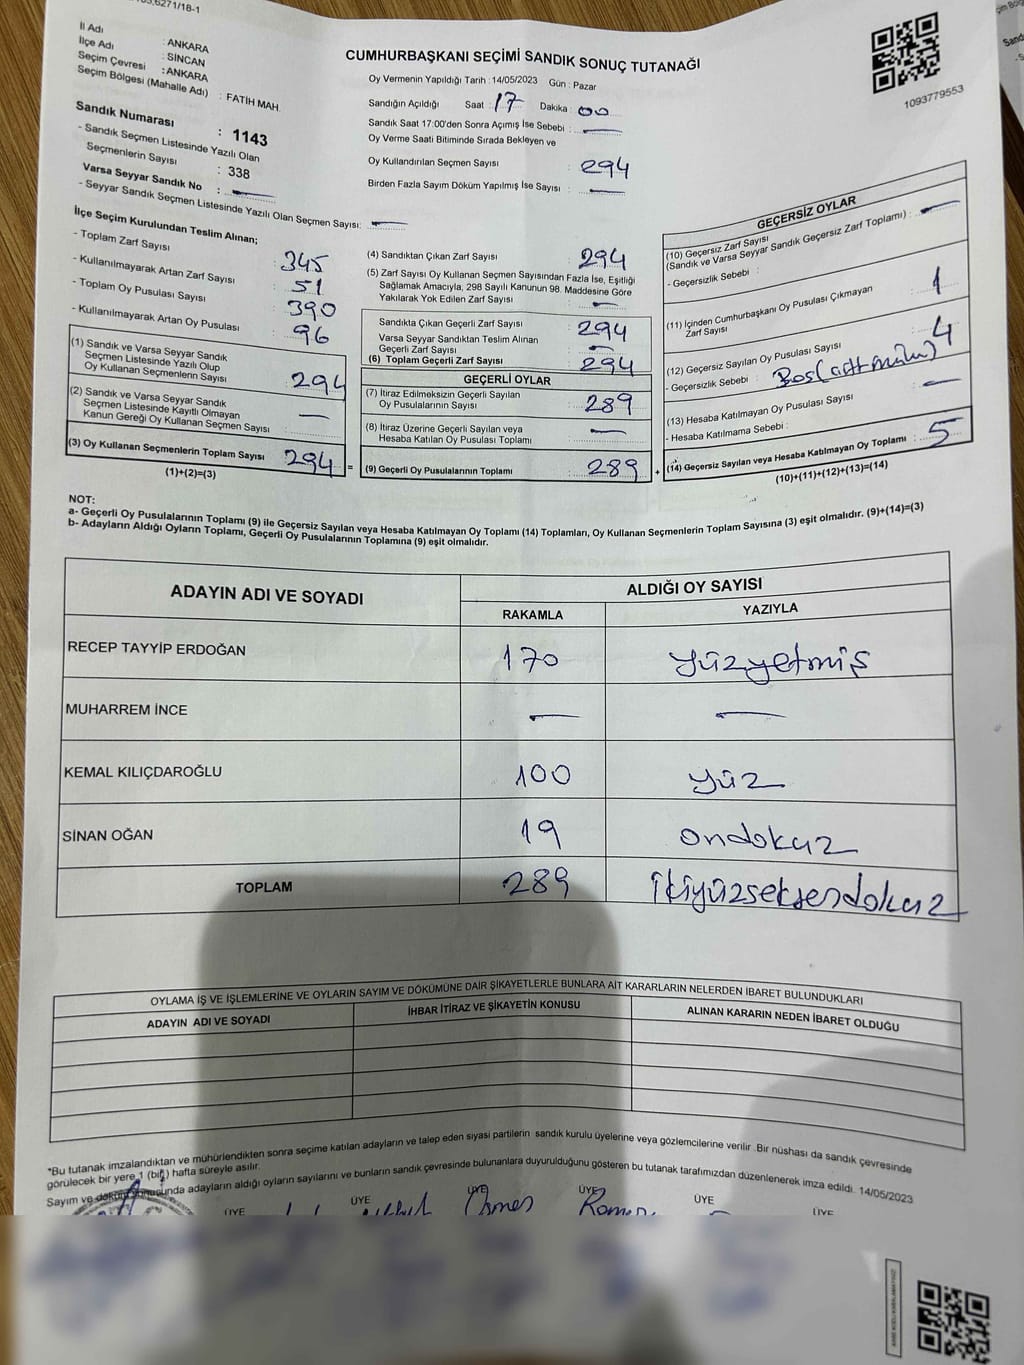 6271/18-1
İl Adı : ANKARA
İlçe Adı : SİNCAN
Seçim Çevresi : ANKARA
Seçim Bölgesi (Mahalle Adı) : FATİH MAH.
Sandık Numarası : 1143
- Sandık Seçmen Listesinde Yazılı Olan
Seçmenlerin Sayısı : 338
Varsa Seyyar Sandık No : —
- Seyyar Sandık Seçmen Listesinde Yazılı Olan Seçmen Sayısı: —
CUMHURBAŞKANI SEÇİMİ SANDIK SONUÇ TUTANAĞI
Oy Vermenin Yapıldığı Tarih : 14/05/2023 Gün : Pazar
Sandığın Açıldığı Saat : 17 Dakika : 00
Sandık Saat 17:00'den Sonra Açımış İse Sebebi : —
Oy Verme Saati Bitiminde Sırada Bekleyen ve
Oy Kullandırılan Seçmen Sayısı : 294
Birden Fazla Sayım Döküm Yapılmış İse Sayısı : —
1093779553
İlçe Seçim Kurulundan Teslim Alınan;
- Toplam Zarf Sayısı : 345
- Kullanılmayarak Artan Zarf Sayısı : 51
- Toplam Oy Pusulası Sayısı : 390
- Kullanılmayarak Artan Oy Pusulası : 96
(1) Sandık ve Varsa Seyyar Sandık
Seçmen Listesinde Yazılı Olup
Oy Kullanan Seçmenlerin Sayısı : 294
(2) Sandık ve Varsa Seyyar Sandık
Seçmen Listesinde Kayıtlı Olmayan
Kanun Gereği Oy Kullanan Seçmen Sayısı : —
(3) Oy Kullanan Seçmenlerin Toplam Sayısı 294 =
(1)+(2)=(3)
(4) Sandıktan Çıkan Zarf Sayısı : 294
(5) Zarf Sayısı Oy Kullanan Seçmen Sayısından Fazla İse, Eşitliği
Sağlamak Amacıyla, 298 Sayılı Kanunun 98. Maddesine Göre
Yakılarak Yok Edilen Zarf Sayısı : —
Sandıkta Çıkan Geçerli Zarf Sayısı : 294
Varsa Seyyar Sandıktan Teslim Alınan
Geçerli Zarf Sayısı : —
(6) Toplam Geçerli Zarf Sayısı : 294
GEÇERLİ OYLAR
(7) İtiraz Edilmeksizin Geçerli Sayılan
Oy Pusulalarının Sayısı : 289
(8) İtiraz Üzerine Geçerli Sayılan veya
Hesaba Katılan Oy Pusulası Toplamı : —
(9) Geçerli Oy Pusulalarının Toplamı : 289 +
GEÇERSİZ OYLAR
(10) Geçersiz Zarf Sayısı
(Sandık ve Varsa Seyyar Sandık Geçersiz Zarf Toplamı) : —
- Geçersizlik Sebebi :
(11) İçinden Cumhurbaşkanı Oy Pusulası Çıkmayan
Zarf Sayısı : 1
(12) Geçersiz Sayılan Oy Pusulası Sayısı : 4
- Geçersizlik Sebebi :
(13) Hesaba Katılmayan Oy Pusulası Sayısı : —
- Hesaba Katılmama Sebebi :
(14) Geçersiz Sayılan veya Hesaba Katılmayan Oy Toplamı : 5
(10)+(11)+(12)+(13)=(14)
NOT:
a- Geçerli Oy Pusulalarının Toplamı (9) ile Geçersiz Sayılan veya Hesaba Katılmayan Oy Toplamı (14) Toplamları, Oy Kullanan Seçmenlerin Toplam Sayısına (3) eşit olmalıdır. (9)+(14)=(3)
b- Adayların Aldığı Oyların Toplamı, Geçerli Oy Pusulalarının Toplamına (9) eşit olmalıdır.
ADAYIN ADI VE SOYADI ALDIĞI OY SAYISI
RAKAMLA YAZIYLA
RECEP TAYYİP ERDOĞAN 170 yüzyetmiş
MUHARREM İNCE — —
KEMAL KILIÇDAROĞLU 100 yüz
SİNAN OĞAN 19 ondokuz
TOPLAM 289 ikiyüzseksendokuz
OYLAMA İŞ VE İŞLEMLERİNE VE OYLARIN SAYIM VE DÖKÜMÜNE DAİR ŞİKAYETLERLE BUNLARA AİT KARARLARIN NELERDEN İBARET BULUNDUKLARI
ADAYIN ADI VE SOYADI İHBAR İTİRAZ VE ŞİKAYETİN KONUSU ALINAN KARARIN NEDEN İBARET OLDUĞU
*Bu tutanak imzalandıktan ve mühürlendikten sonra seçime katılan adayların ve talep eden siyasi partilerin sandık kurulu üyelerine veya gözlemcilerine verilir. Bir nüshası da sandık çevresinde
görülecek bir yere 1 (bir) hafta süreyle asılır.
Sayım ve döküm sonucunda adayların aldığı oyların sayılarını ve bunların sandık çevresinde bulunanlara duyurulduğunu gösteren bu tutanak tarafımızdan düzenlenerek imza edildi. 14/05/2023
ÜYE ÜYE ÜYE ÜYE ÜYE ÜYE